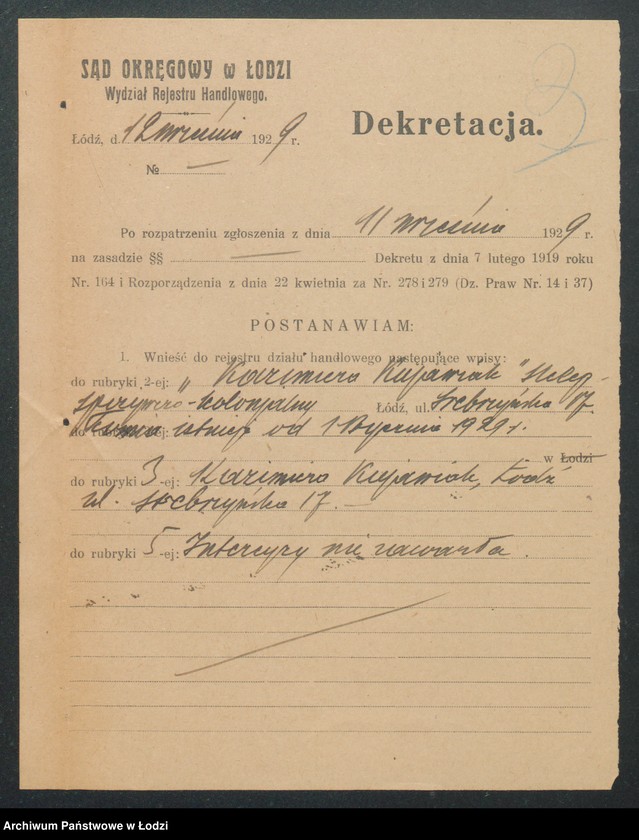 SĄD OKRĘGOWY w ŁODZI
Wydział Rejestru Handlowego.
Dekretacja.
3
Łódź, d. 12 września 1929 r.
№ —
Po rozpatrzeniu zgłoszenia z dnia 11 września 1929 r.
na zasadzie §§ — Dekretu z dnia 7 lutego 1919 roku
Nr. 164 i Rozporządzenia z dnia 22 kwietnia za Nr. 278 i 279 (Dz. Praw Nr. 14 i 37)
POSTANAWIAM:
1. Wnieść do rejestru działu handlowego następujące wpisy:
do rubryki 2-ej: „Kazimiera Kujawiak" sklep
spożywczo-kolonjalny Łódź, ul. Srebrzyńska 17.
Firma istnieje od 1 stycznia 1929 r.
w Łodzi
do rubryki 3-ej: Kazimiera Kujawiak, Łódź
ul. Srebrzyńska 17. —
do rubryki 5-ej: Intercyzy nie zawarła.
Archiwum Państwowe w Łodzi